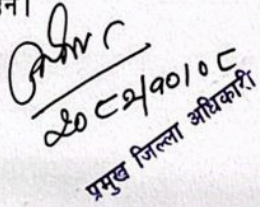 २०८२/१०/०८
प्रमुख जिल्ला अधिकारी